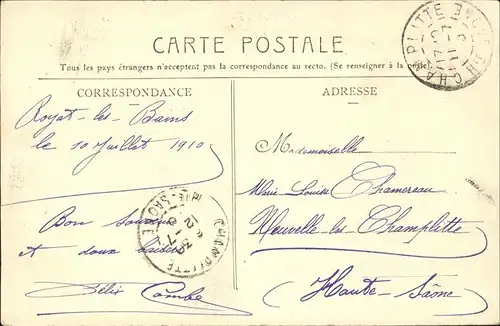 CARTE POSTALE
Tous les pays étrangers n'acceptent pas la correspondance au recto. (Se renseigner à la poste)
CORRESPONDANCE
ADRESSE
Royat-les-Bains
le 10 Juillet 1910
Bon souvenir
et doux baisers
Félix Combe
Mademoiselle
Marie Louise Chamereau
Neuvelle-les-Champlitte
Haute-Saône
CHAMPLITTE
HTE SAONE
CHAMPLITTE